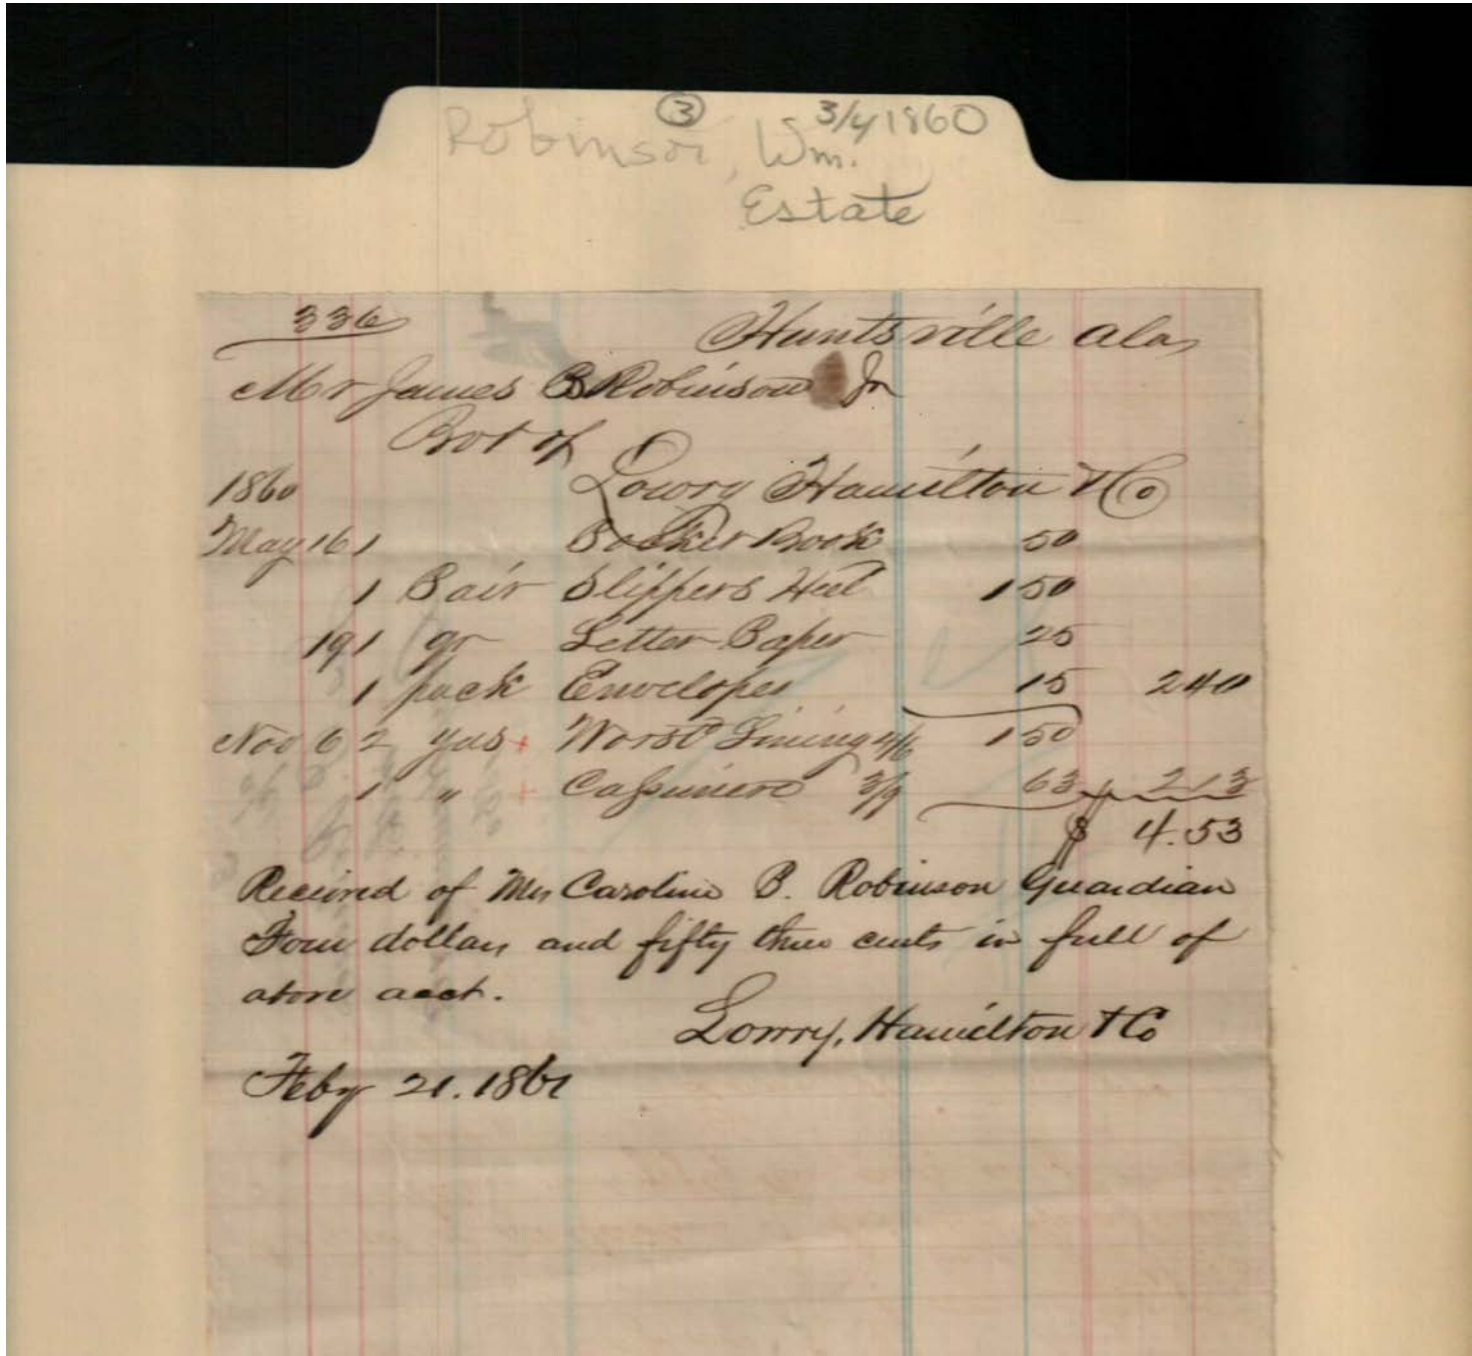 ③ 3/4 1860
Robinson, Wm.
Estate
336
Huntsville Ala,
Mr James B Robinson Jr
Bot of
1860 Lowry Hamilton & Co
May 16 1 Pocket Book 50
1 Pair Slippers Heel 1 50
19 1 qr Letter Paper 25
1 pack Envelopes 15 2 40
Nov 6 2 yds + Worstd Lining 4/6 1 50
1 " + Cassimere 3/9 63 2 13
$ 4.53
Received of Mrs Caroline B. Robinson Guardian
Four dollars and fifty three cents in full of
above acct.
Lowry, Hamilton & Co
Feby 21. 1861